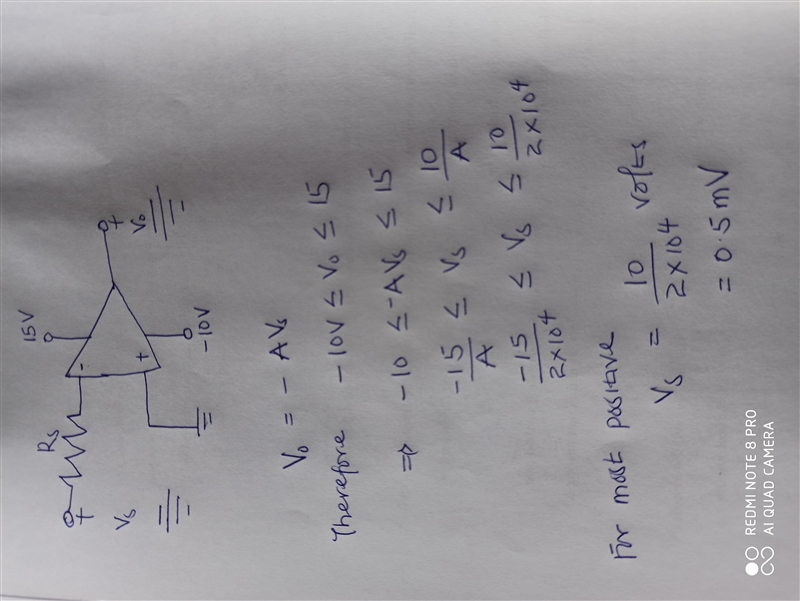 15V
Rs
-
+
Vs
+
-10V
+
Vo
Vo = - AVs
Therefore -10V ≤ Vo ≤ 15
⇒ -10 ≤ -AVs ≤ 15
-15/A ≤ Vs ≤ 10/A
-15/2×10^4 ≤ Vs ≤ 10/2×10^4
For most positive
Vs = 10/2×10^4 volts
= 0.5mV
REDMI NOTE 8 PRO
AI QUAD CAMERA